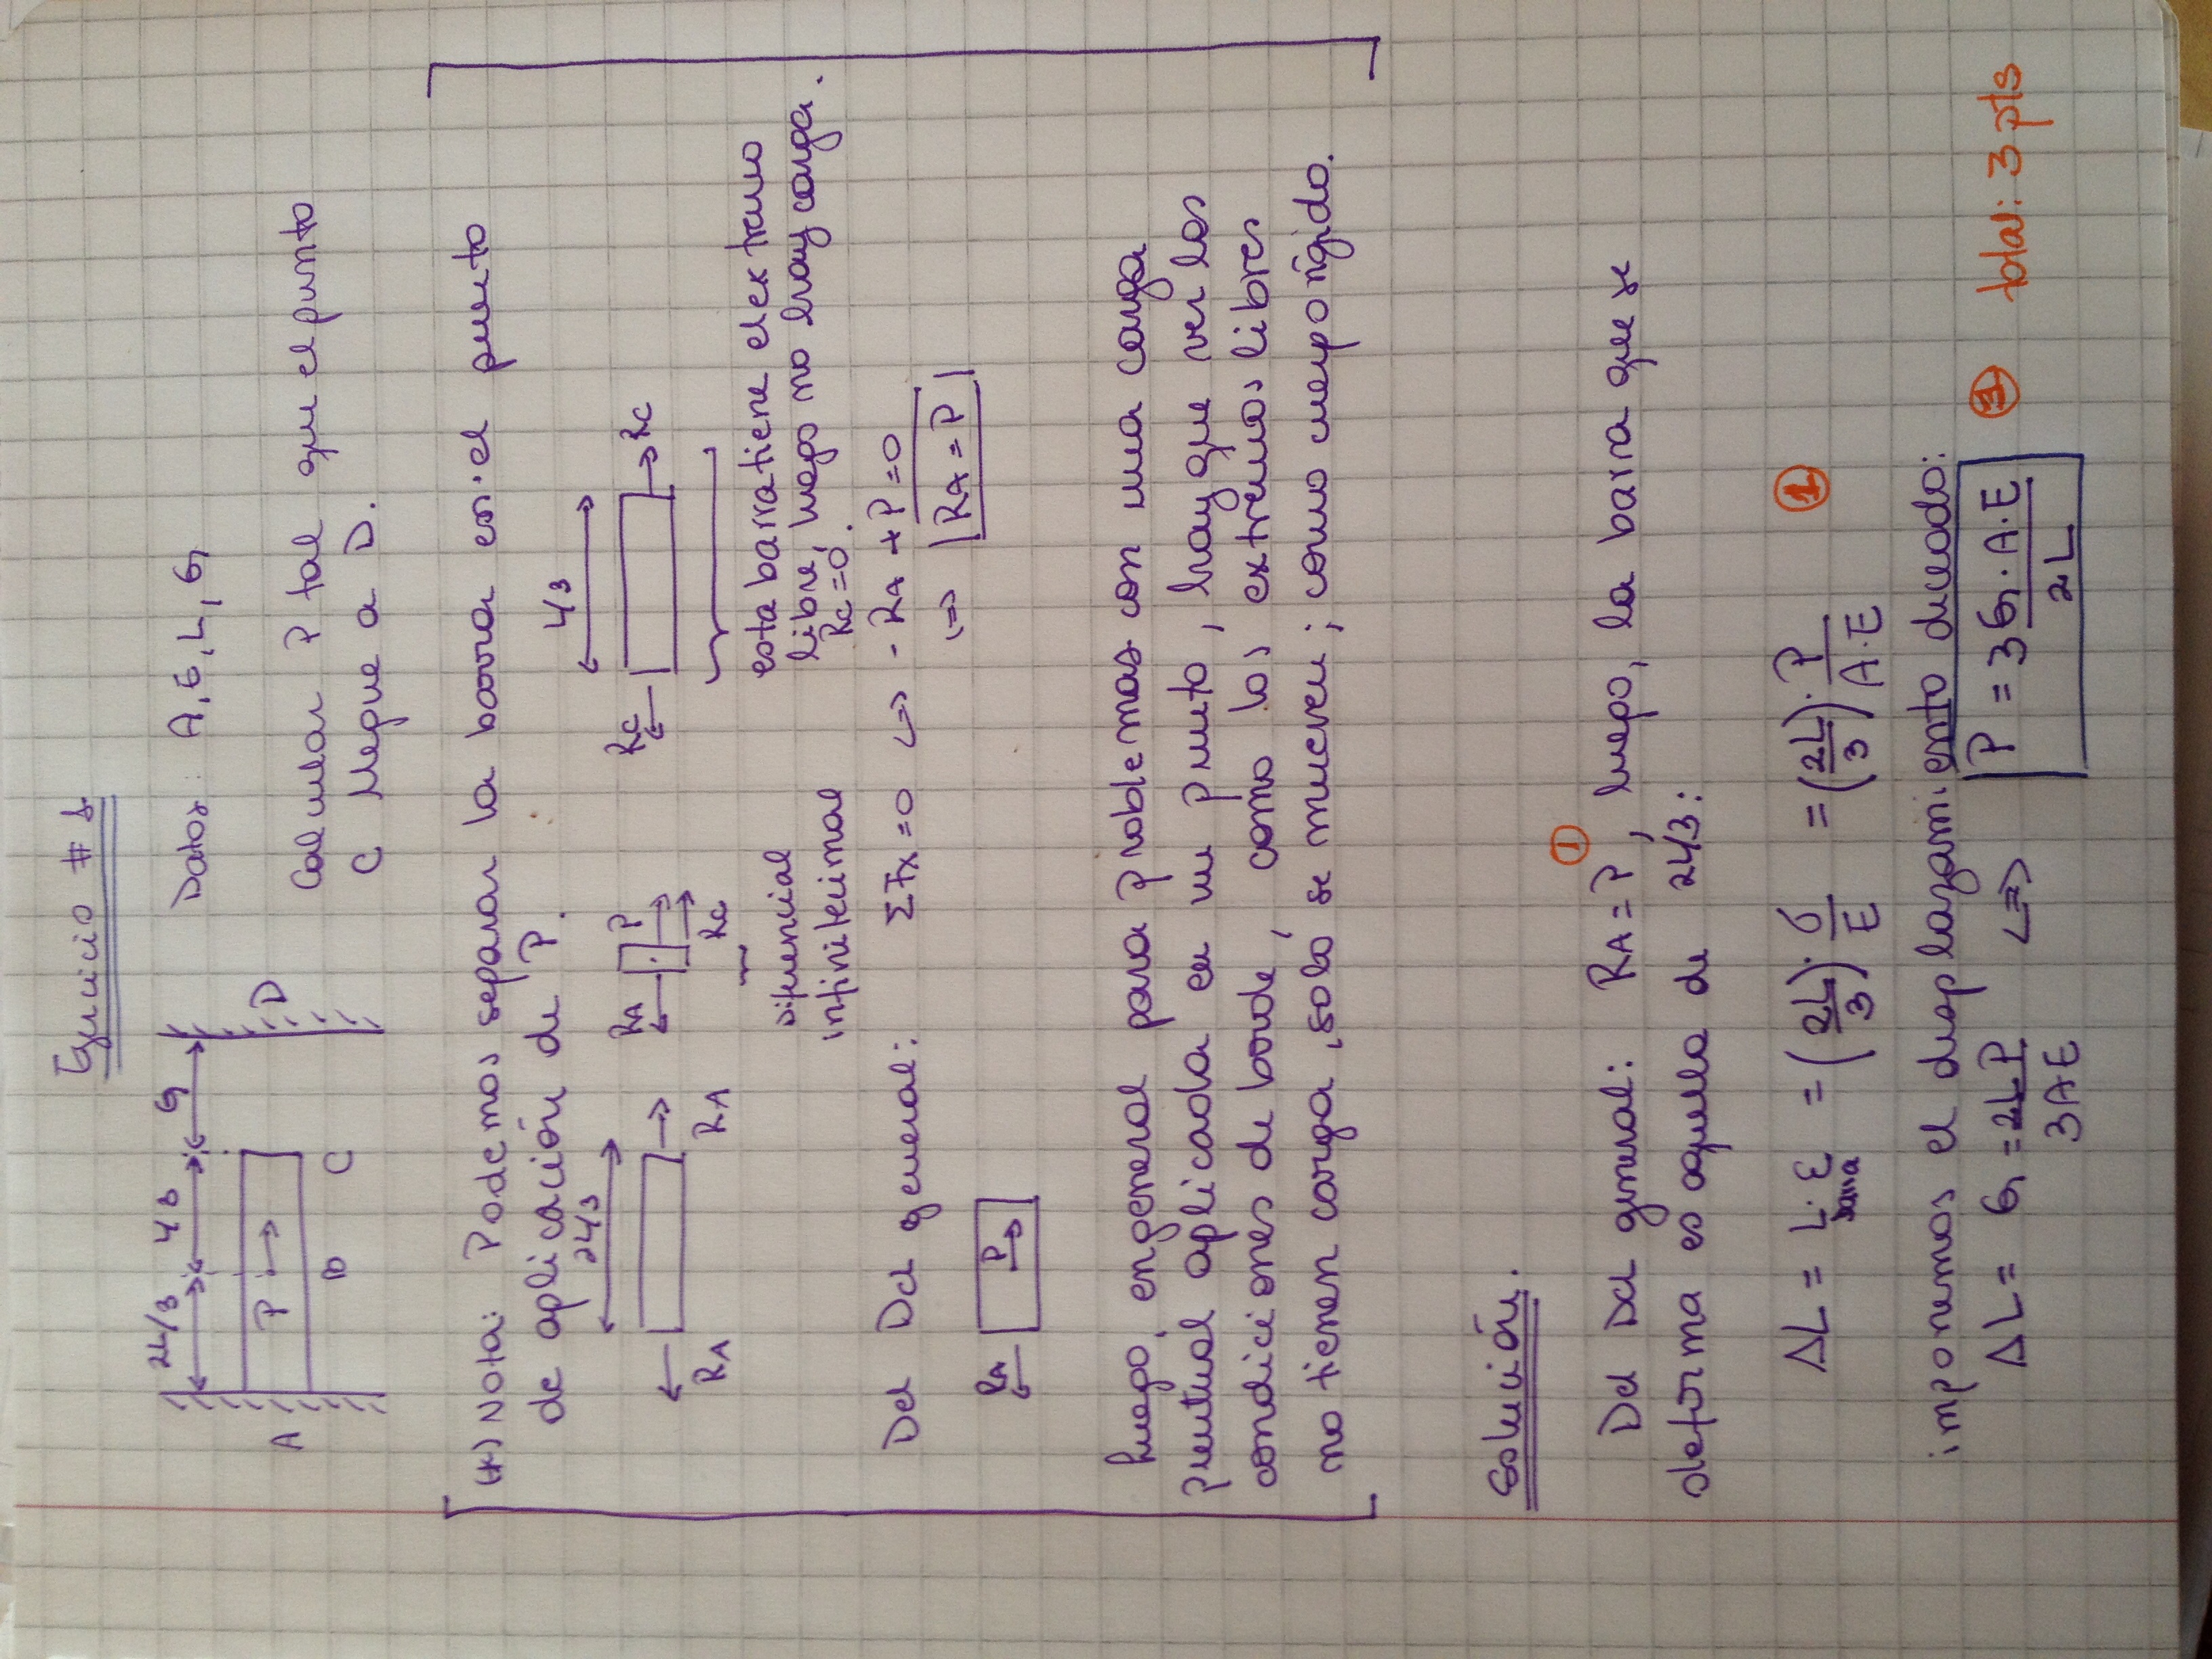 Ejercicio # 1
2L/3 L/3 G
P
A B C D
Datos: A, E, L, G
Calcular P tal que el punto
C llegue a D.
(*) Nota: Podemos separar la barra en el punto
de aplicación de P.
2L/3
RA RA
RA P RC
diferencial
infinitecimal
L/3
RC RC
esta barra tiene el extremo
libre, luego no hay carga.
RC = 0.
Del Dcl general: ΣFx = 0 <-> - RA + P = 0
RA P
<=> RA = P
Luego, en general para problemas con una carga
puntual aplicada en un punto, hay que ver las
condiciones de borde, como los extremos libres
no tienen carga, solo se mueven; como cuerpo rígido.
Solución.
Del Dcl general: RA = P ①, luego, la barra que se
deforma es aquella de 2L/3:
ΔL = L barra · ε = (2L/3) · σ/E = (2L/3) · P/A·E ①
imponemos el desplazamiento deseado:
ΔL = G = 2LP/3AE <=> P = 3G·A·E/2L ① total: 3 pts